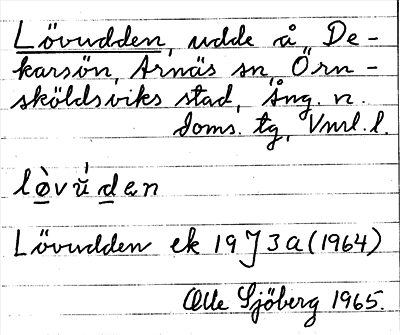 Lövudden, udde å De-
karsön, Arnäs sn, Örn-
sköldsviks stad, Ång. n.
doms. tg, Vnrl. l.
lòvúden
Lövudden ek 19J3a(1964)
Olle Sjöberg 1965.